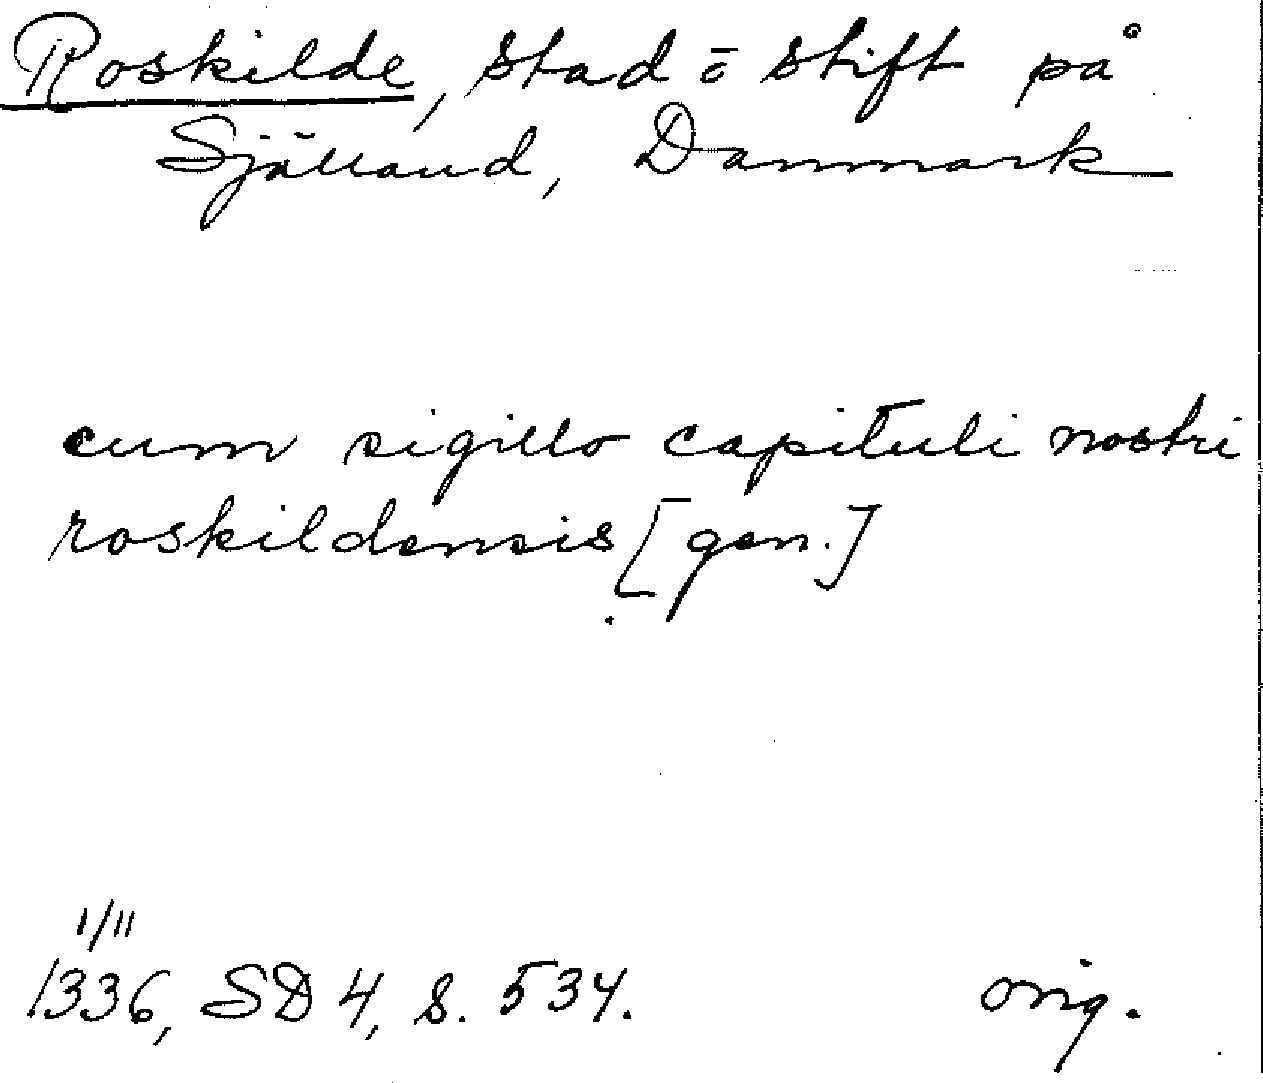 Roskilde, stad ō stift på
Själland, Danmark
cum sigillo capituli nostri
roskildensis [gen.]
1/11
1336, SD 4, s. 534.
orig.